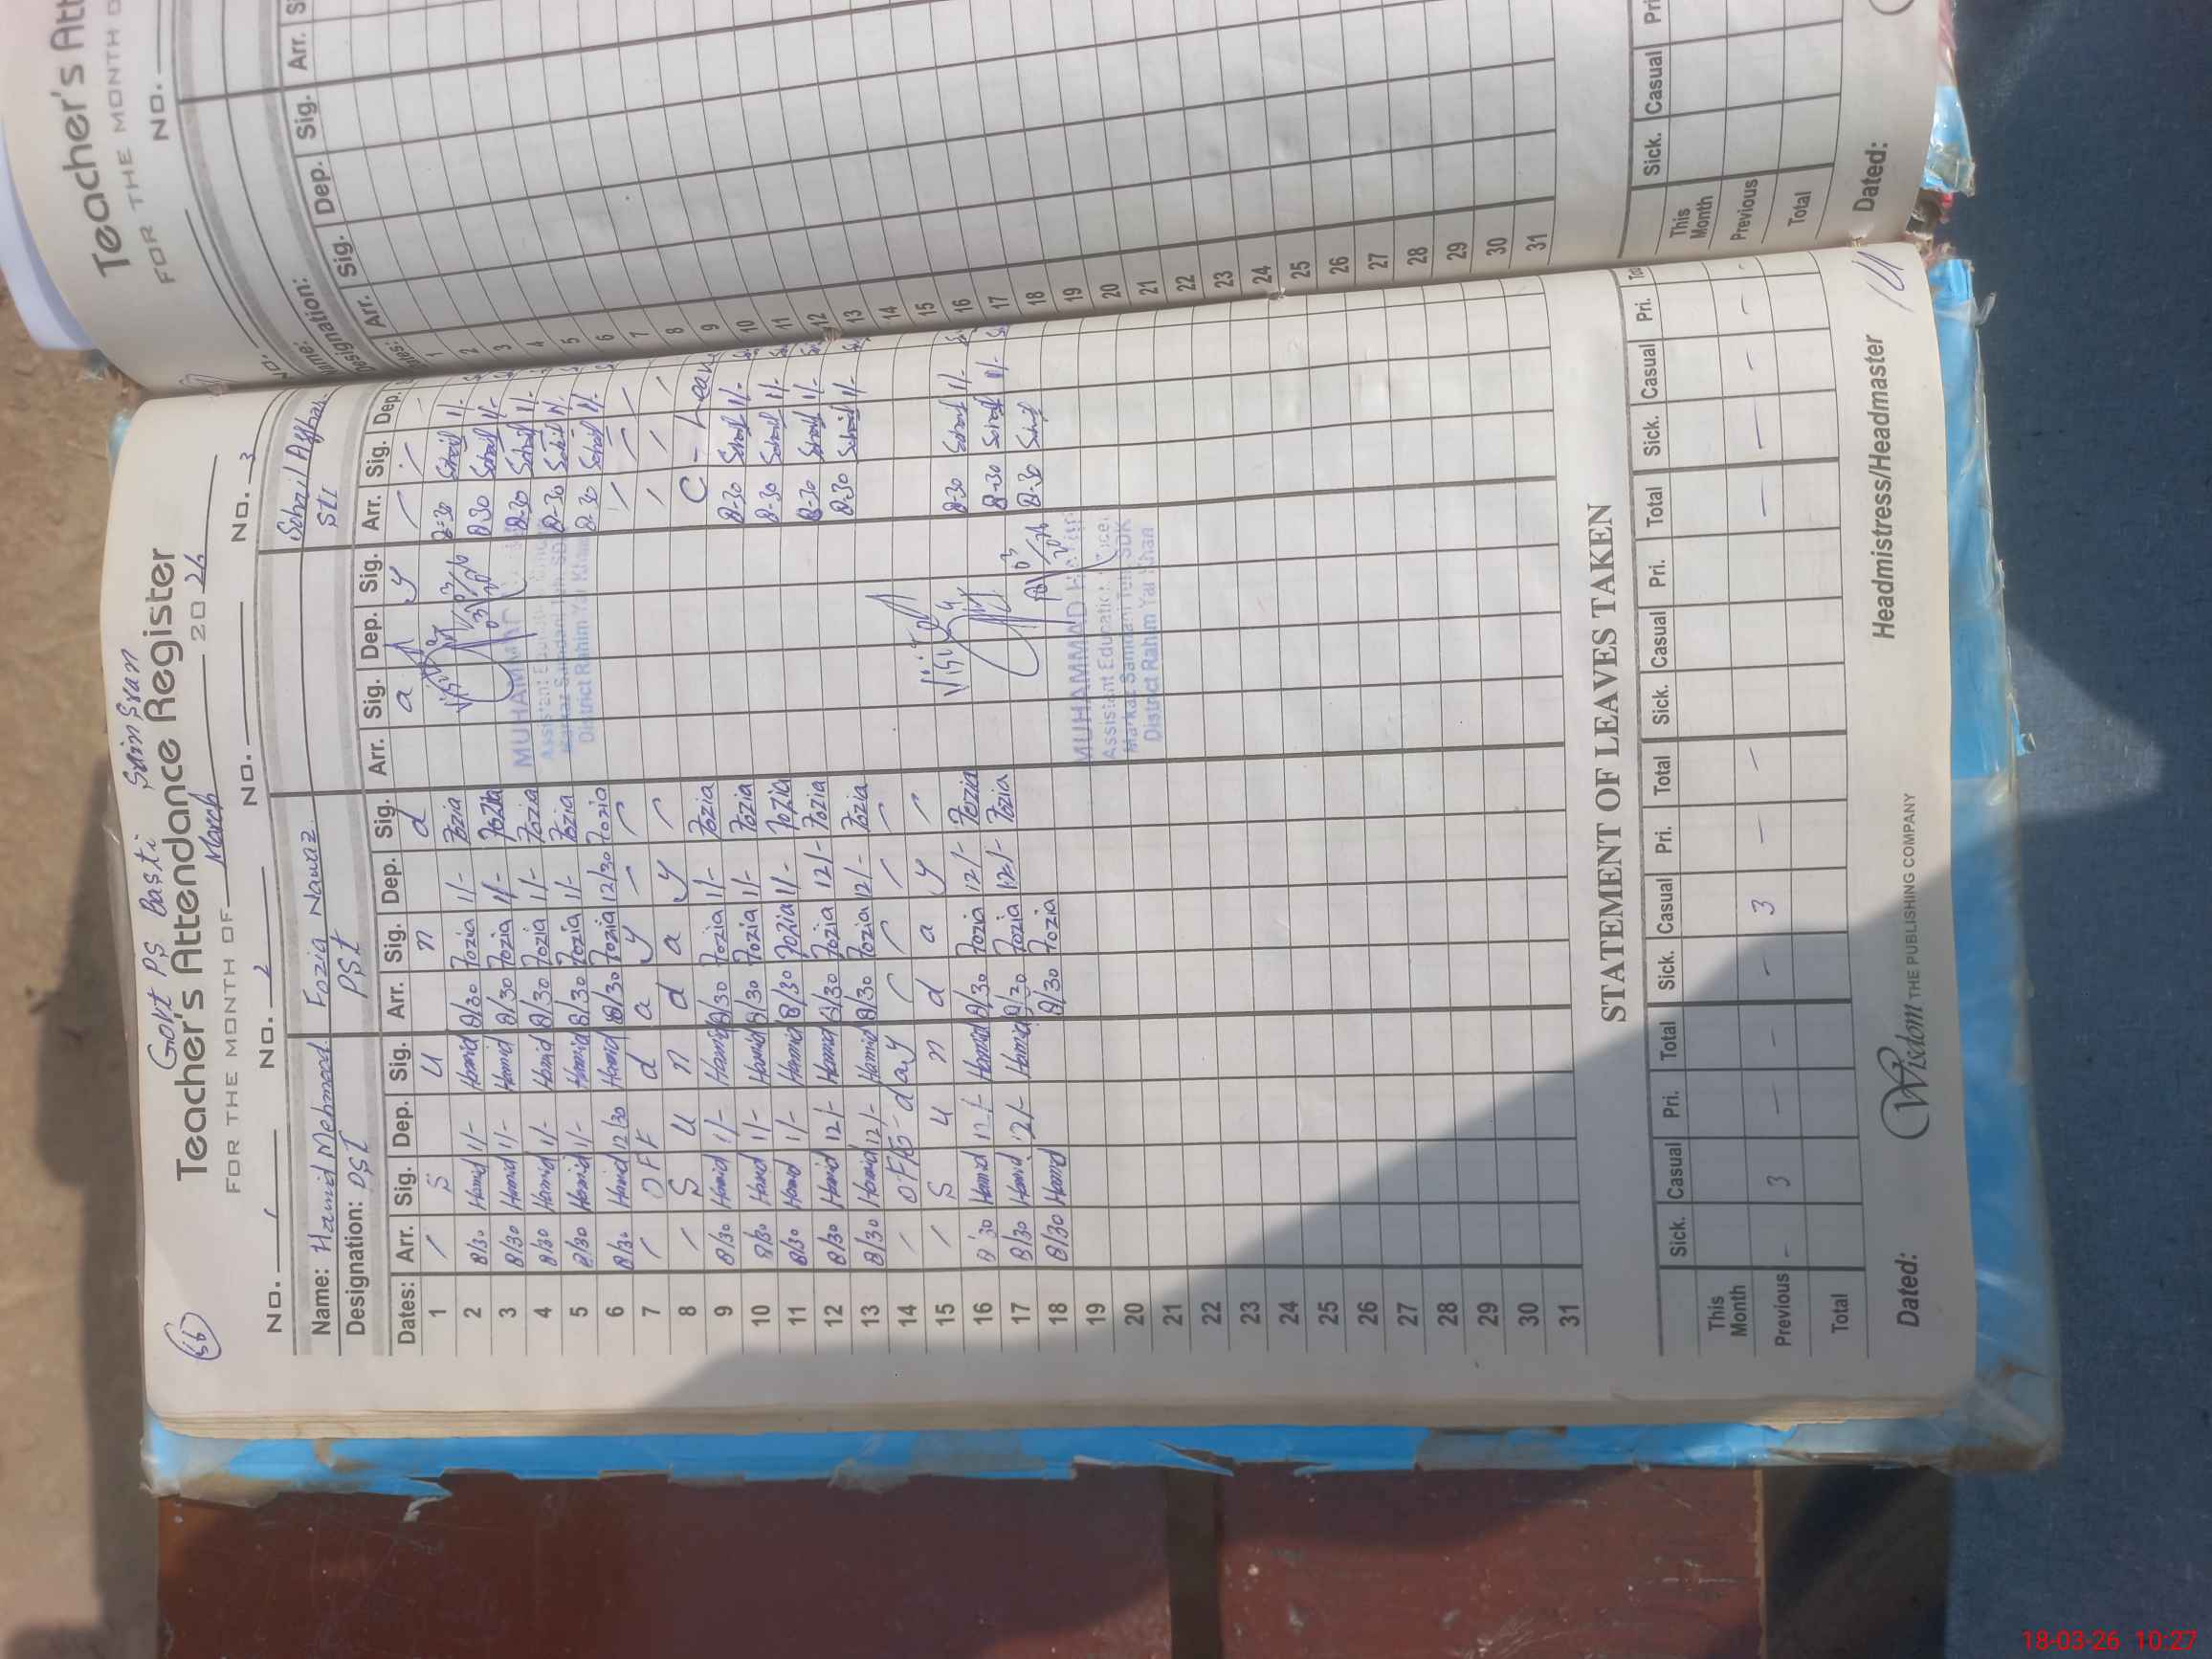 56
Govt PS Basti
Teacher's Attendance Register
FOR THE MONTH OF March 2026
No. 1 No. 2 No. No. 3
Name: Hamid Mehmood Fozia Nawaz Sohail Asghar
Designation: PST PST STI
Dates: Arr. Sig. Dep. Sig. Arr. Sig. Dep. Sig. Arr. Sig. Dep. Sig. Arr. Sig. Dep.
1 / S u n d a y
2 8/30 Hamid 1/- Hamid 8/30 Fozia 1/- Fozia Visited 8-30 Sohail 1/-
3 8/30 Hamid 1/- Hamid 8/30 Fozia 1/- Fozia 8-30 Sohail 1/-
4 8/30 Hamid 1/- Hamid 8/30 Fozia 1/- Fozia 8-30 Sohail 1/-
5 8/30 Hamid 1/- Hamid 8/30 Fozia 1/- Fozia 8-30 Sohail 1/-
6 8/30 Hamid 12/30 Hamid 8/30 Fozia 12/30 Fozia 8-30 Sohail 1/-
7 / OFF d a y
8 / S u n d a y
9 8/30 Hamid 1/- Hamid 8/30 Fozia 1/- Fozia C - Leav
10 8/30 Hamid 1/- Hamid 8/30 Fozia 1/- Fozia 8-30 Sohail 1/-
11 8/30 Hamid 1/- Hamid 8/30 Fozia 1/- Fozia 8-30 Sohail 1/-
12 8/30 Hamid 12/- Hamid 8/30 Fozia 12/- Fozia 8-30 Sohail 1/-
13 8/30 Hamid 12/- Hamid 8/30 Fozia 12/- Fozia 8-30 Sohail 1/-
14 / OFF - day
15 / S u n d a y
16 8/30 Hamid 12/- Hamid 8/30 Fozia 12/- Fozia Visited 8-30 Sohail 1/-
17 8/30 Hamid 12/- Hamid 8/30 Fozia 12/- Fozia 8-30 Sohail 1/-
18 8/30 Hamid 8/30 Fozia 8-30 Sohail
19
20
21
22
23
24
25
26
27
28
29
30
31
MUHAMMAD
District Rahim Yar Khan
MUHAMMAD
Assistant Education
District Rahim Yar Khan
STATEMENT OF LEAVES TAKEN
Sick. Casual Pri. Total Sick. Casual Pri. Total Sick. Casual Pri. Total Sick. Casual Pri.
This Month
Previous - 3 - - - 3 - - - - - -
Total
Dated: Wisdom THE PUBLISHING COMPANY Headmistress/Headmaster
Teacher's Att
FOR THE MONTH O
No.
No.
Name:
Designation:
Dates: Arr. Sig. Dep. Sig. Arr. S
1
2
3
4
5
6
7
8
9
10
11
12
13
14
15
16
17
18
19
20
21
22
23
24
25
26
27
28
29
30
31
Sick. Casual Pri
This Month
Previous
Total
Dated:
18-03-26 10:27